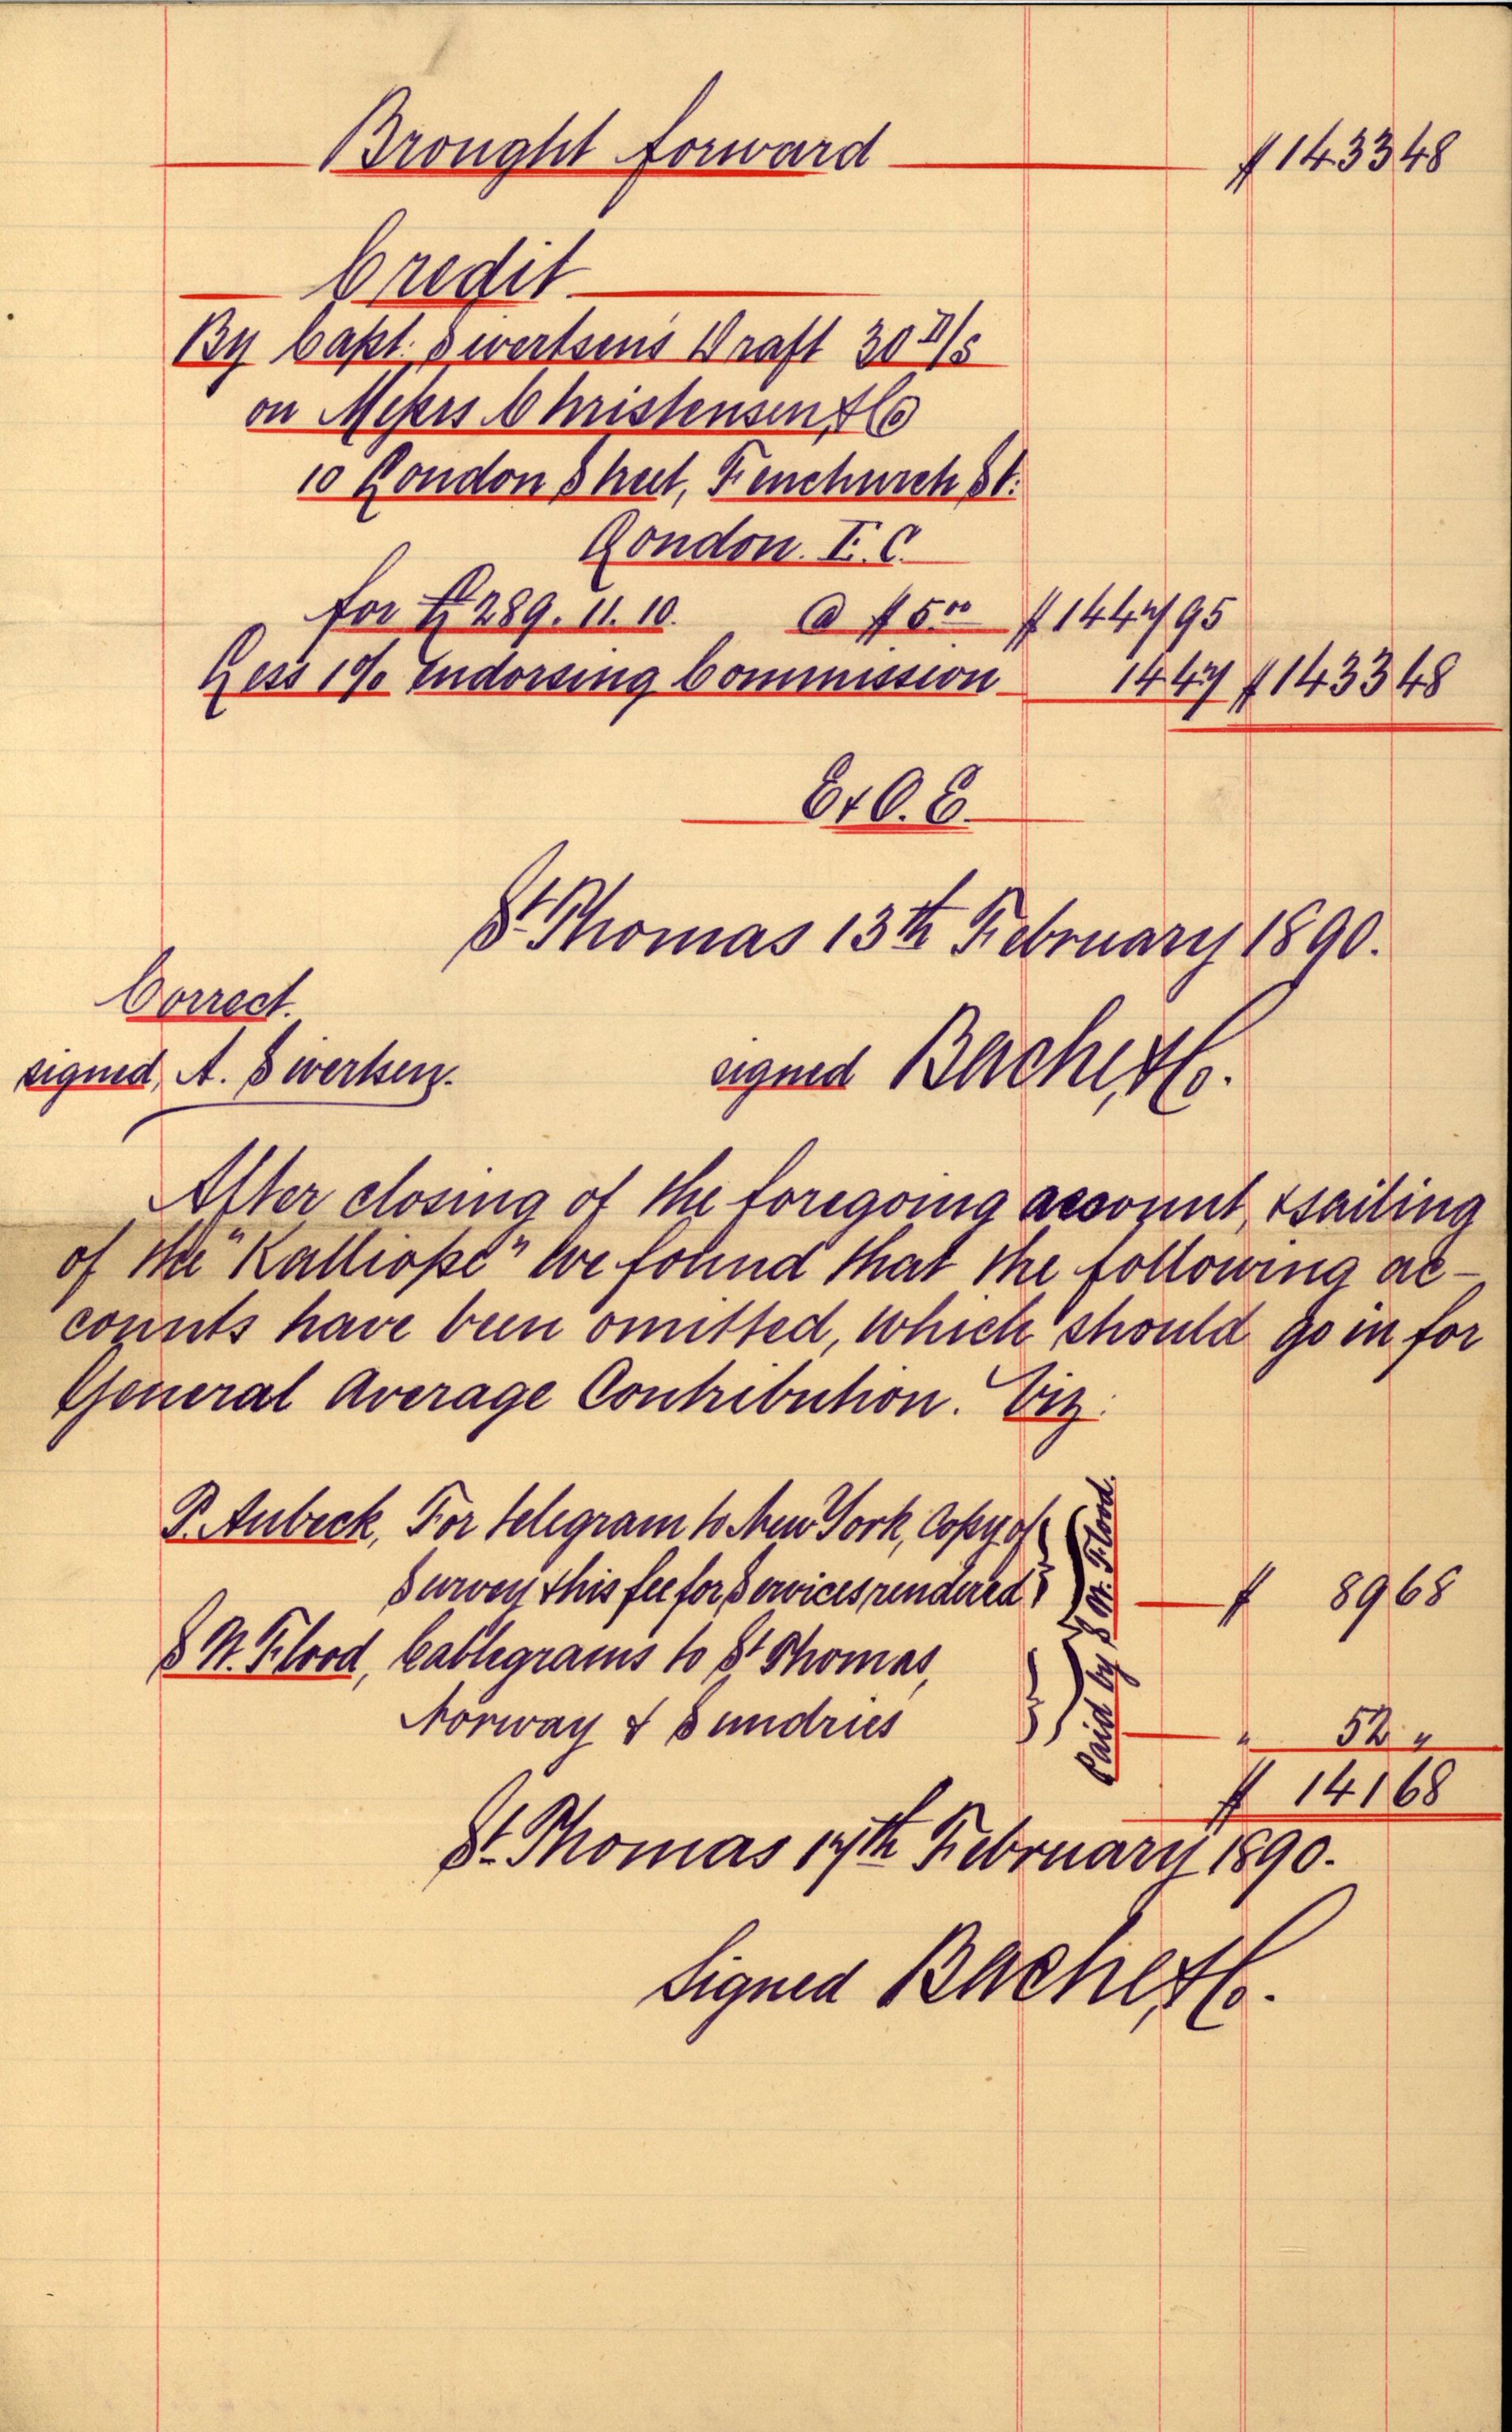 Brought forward $ 1433 48
Credit
By Capt: Sivertsen's Draft 30 D/s
on Messrs Christensen, & Co
10 London Street, Fenchurch St:
London. E. C.
for £ 289. 11. 10. @ $ 5.00 $ 1447 95
Less 1% Endorsing Commission 14 47 $ 1433 48
E & O. E.
St Thomas 13th February 1890.
Correct.
signed, A. Sivertsen. signed Bache, & Co.
After closing of the foregoing account, & sailing
of the "Kalliope" we found that the following ac-
counts have been omitted, which should go in for
General Average Contribution. Viz:
P. Aubeck, For telegram to New York, Copy of
Survey & his fee for Services rendered $ 89 68
S W. Flood, Cablegrams to St Thomas,
Norway & Sundries " 52 "
Paid by S W. Flood.
$ 141 68
St Thomas 17th February 1890.
Signed Bache, & Co.